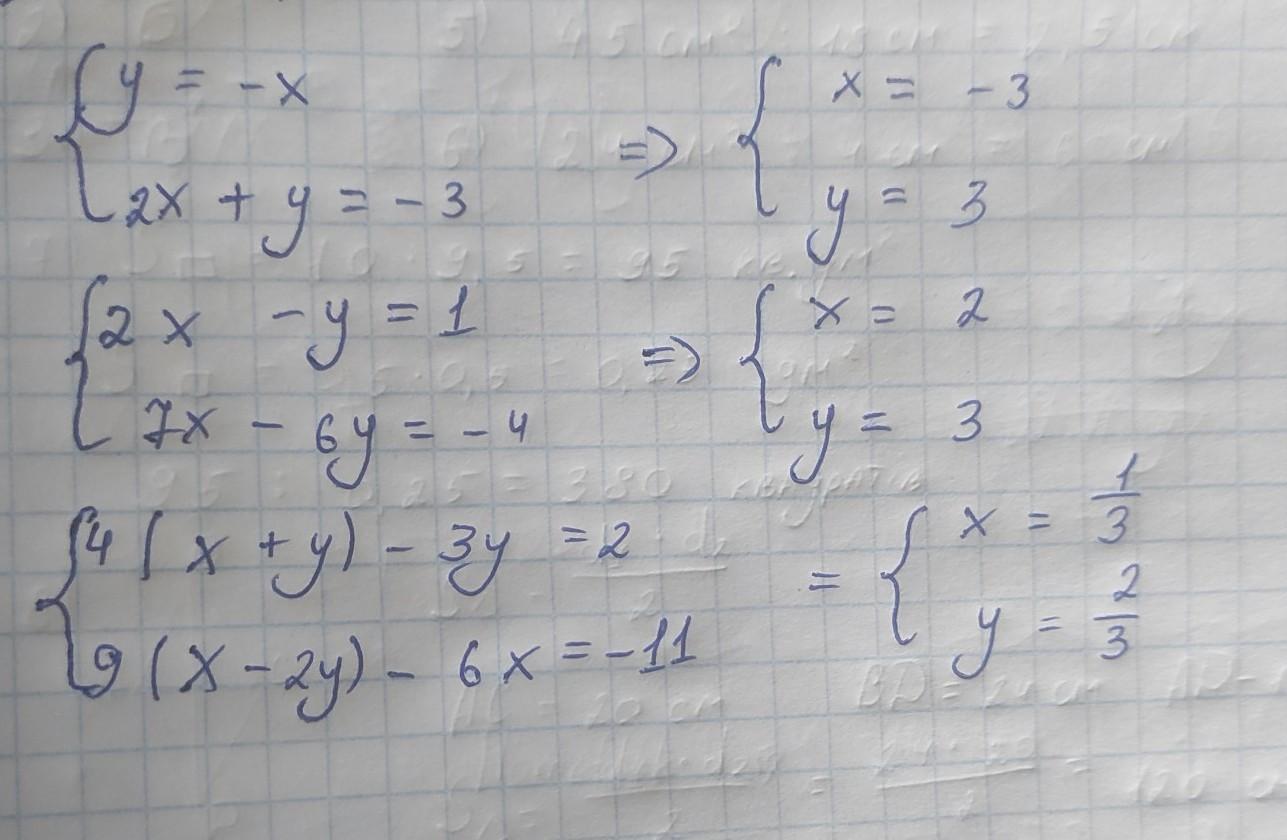 y = -x
2x + y = -3 => x = -3
y = 3
2x - y = 1
7x - 6y = -4 => x = 2
y = 3
4(x + y) - 3y = 2
9(x - 2y) - 6x = -11 = x = 1/3
y = 2/3